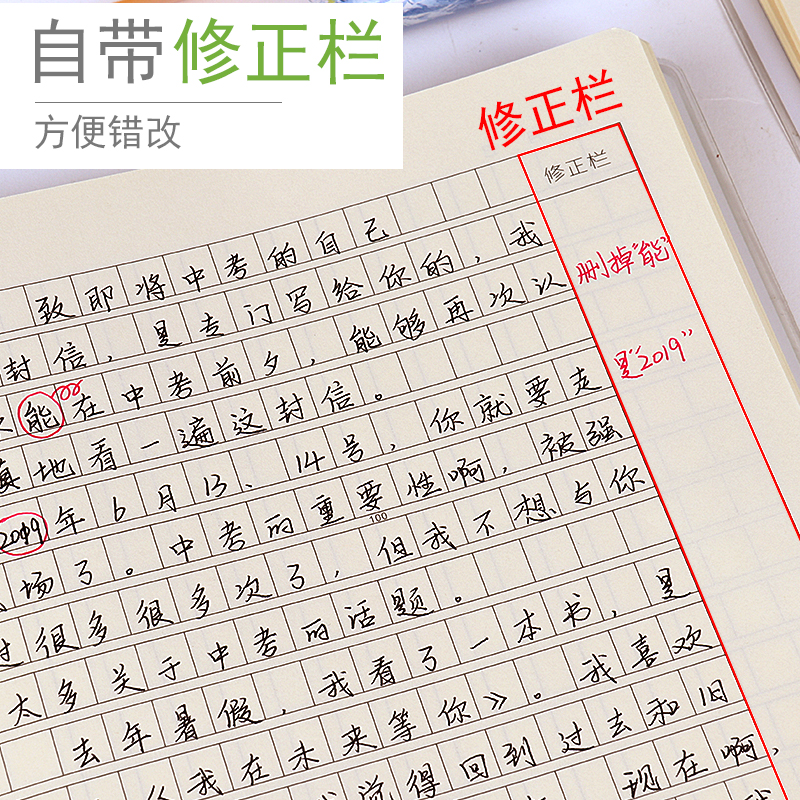 自带修正栏
方便错改
修正栏
修正栏
致即将中考的自己
是专门写给你的，我
封信，能够再次认
能在中考前夕，
真地看一遍这封信。
删掉"能"
2019年6月13、14号，你就要走
是"2019"
场了。中考的重要性啊，被强
100
过很多很多次了，但我不想与你
太多关于中考的话题。
去年暑假，我看了一本书，是
《我在未来等你》。我喜欢
说得回到过去和旧
现在啊，
我